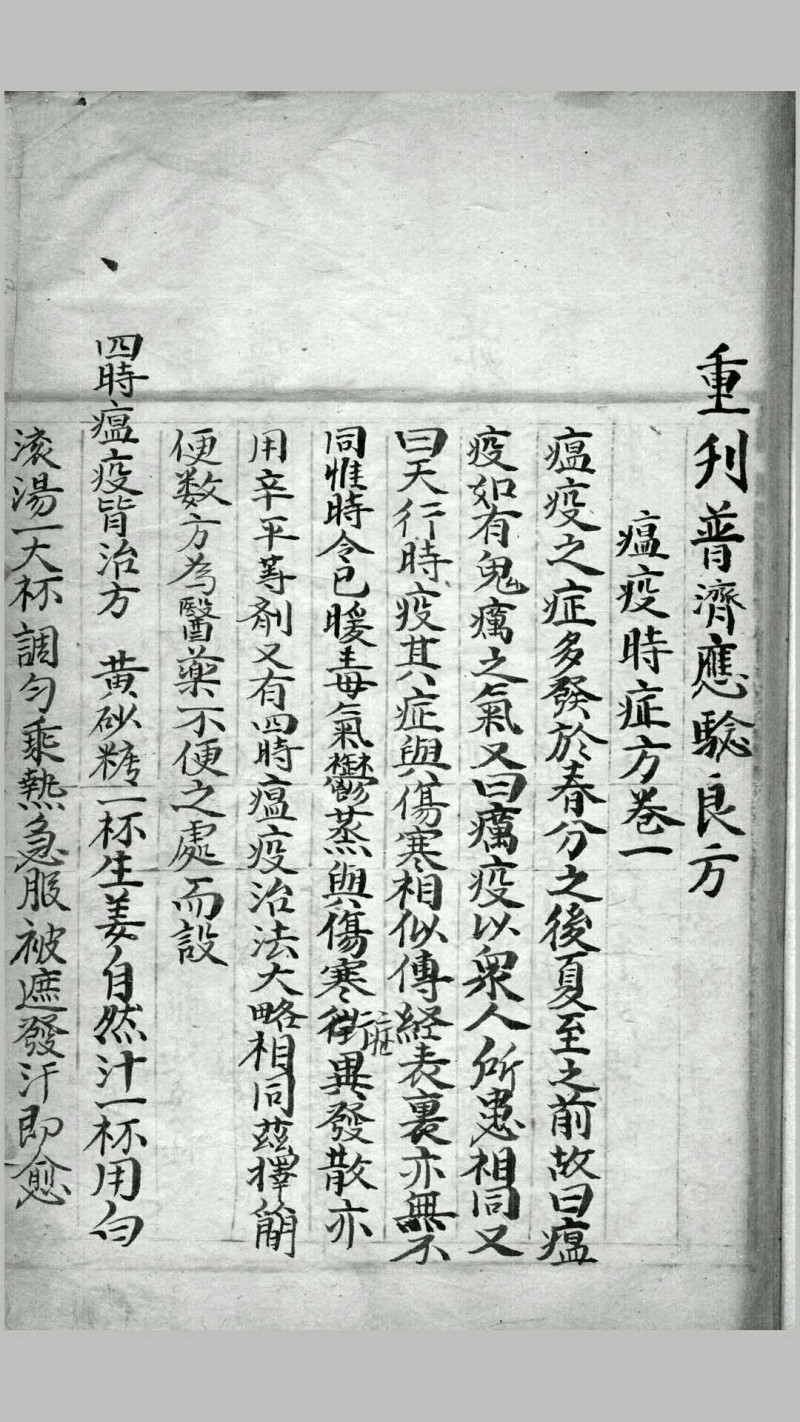 重刋普濟應騐良方
瘟疫時症方卷一
瘟疫之症多發於春分之後夏至之前故曰瘟
疫如有鬼癘之氣又曰癘疫以衆人所患相同又
曰天行時疫其症與傷寒相似傳経表裏亦無不
同惟時令已暖毒氣鬱蒸與傷寒症異發散亦
用辛平等剤又有四時瘟疫治法大略相同茲擇簡
便数方為醫藥不便之處而設
四時瘟疫皆治方 黄砂糖一杯生姜自然汁一杯用白
滚湯一大杯調匀乘熱急服被遮發汗即愈